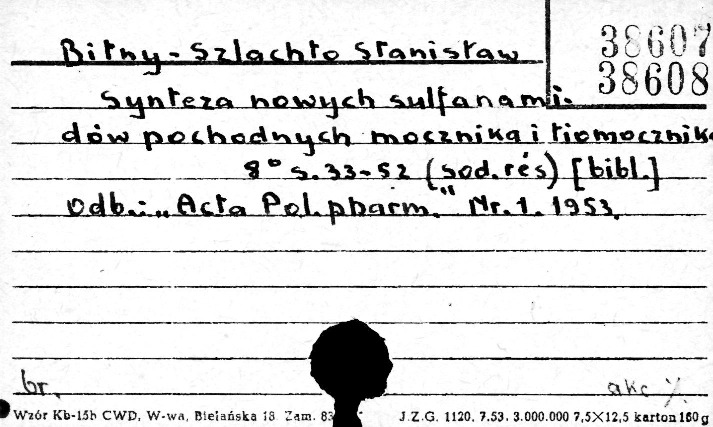 38607
Bitny-Szlachto Stanisław
38608
Synteza nowych sulfanami-
dów pochodnych mocznika i tiomocznika
8° s. 33-52 (sod. rés) [bibl.]
Odb.: „Acta Pol. pharm." Nr. 1. 1953.
br.
akc
Wzór Kb-15b CWD, W-wa, Bielańska 18 Zam. 83
J.Z.G. 1120. 7.53. 3.000.000 7,5×12,5 karton 160 g